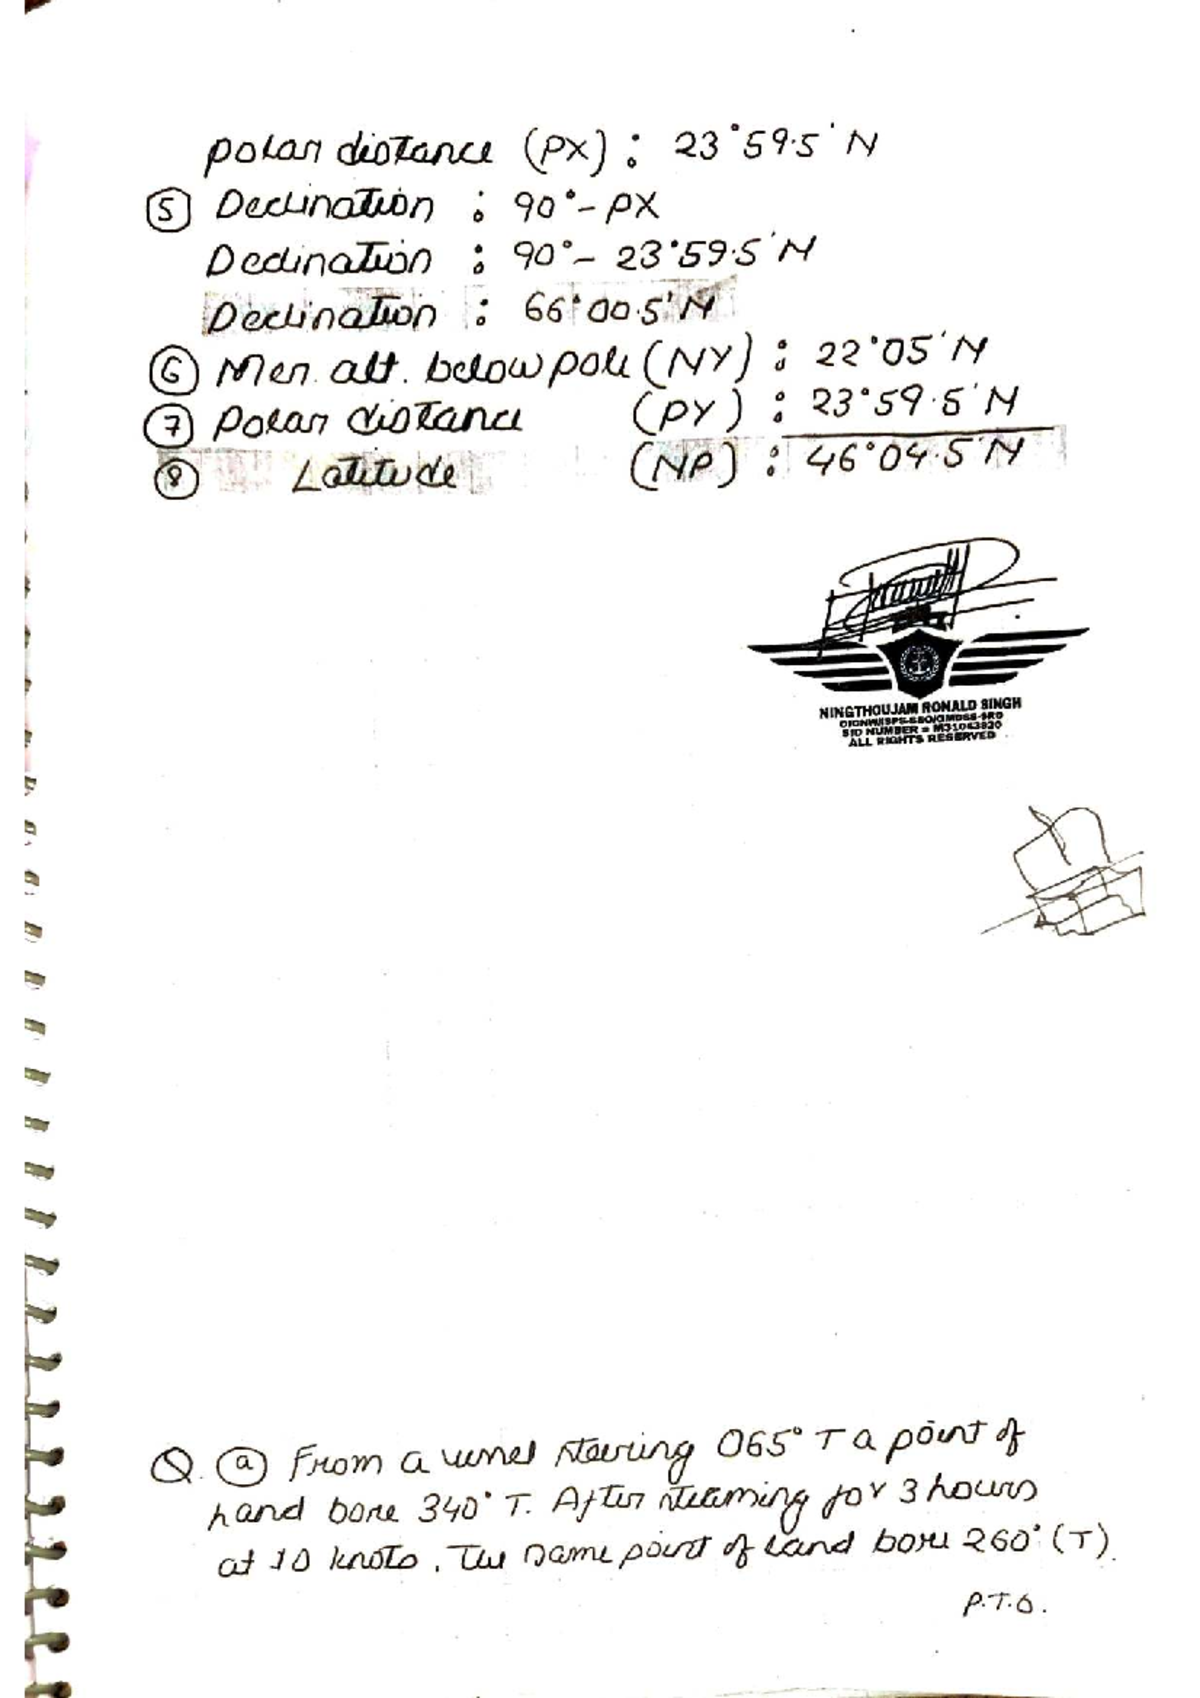 Polar distance (PX) : 23°59.5'N
⑤ Declination : 90°- PX
Declination : 90°- 23°59.5'N
Declination : 66°00.5'N
⑥ Mer. alt. below pole (NY) : 22°05'N
⑦ Polar distance (PY) : 23°59.5'N
⑧ Latitude (NP) : 46°04.5'N
NINGTHOUJAM RONALD SINGH
SID NUMBER = M31043920
ALL RIGHTS RESERVED
Q. ⓐ From a vessel steering 065° T a point of
land bore 340° T. After steaming for 3 hours
at 10 knots, The same point of land bore 260° (T).
P.T.O.